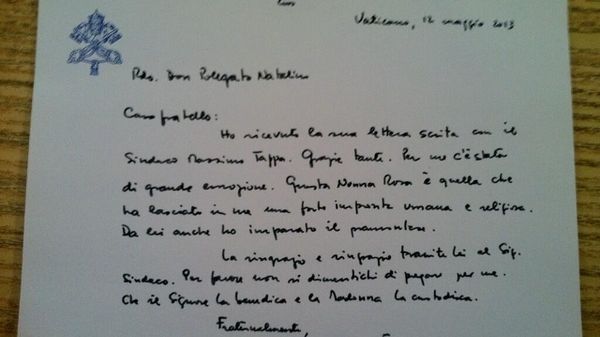 Vaticano, 12 maggio 2013
Rdo. Don Polegato Natalino
Caro fratello:
Ho ricevuto la sua lettera scritta con il
Sindaco Massimo Tappa. Grazie tante. Per me c'è stata
di grande emozione. Questa Nonna Rosa è quella che
ha lasciato in me una forte impronta umana e religiosa.
Da lei anche ho imparato il piemontese.
La ringrazio e ringrazio tramite Lei al Sig.
Sindaco. Per favore non si dimentichi di pregare per me.
Che il Signore la benedica e la Madonna la custodisca.
Fraternalmente,